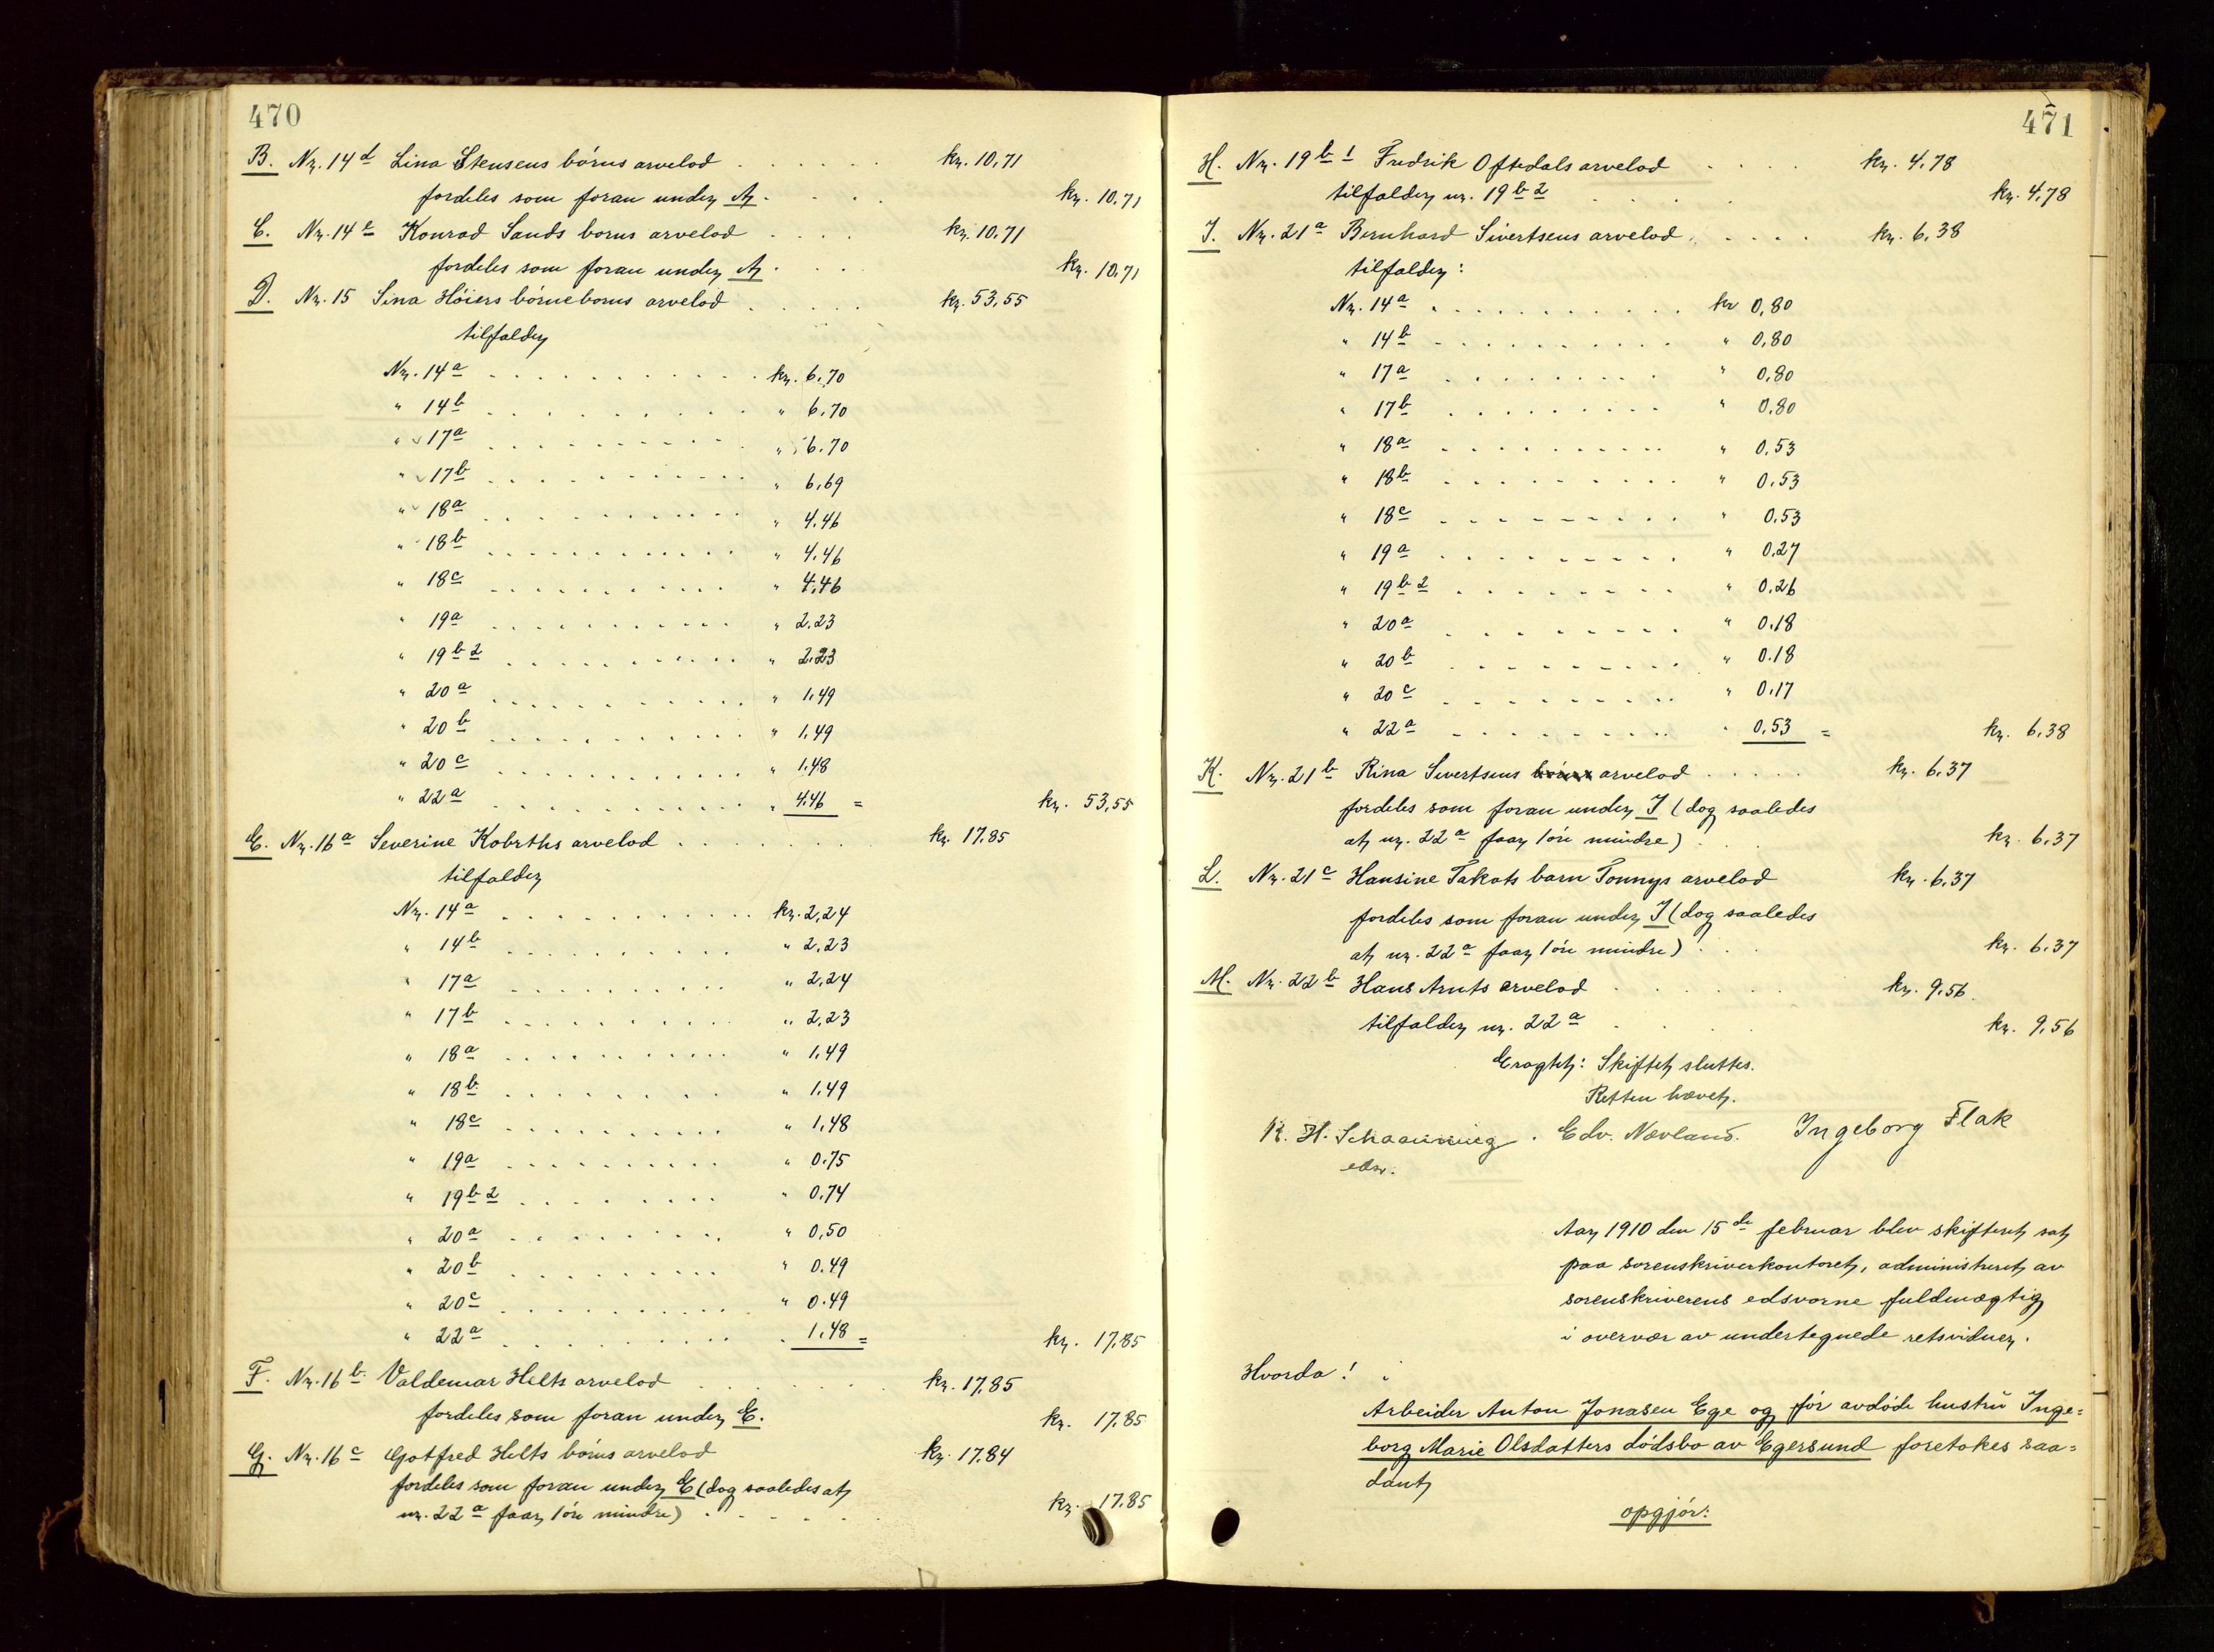 470
B. Nr. 14d Lina Stensens børns arvelod . . . . . . kr. 10,71
fordeles som foran under A. . . . kr. 10,71
C. Nr. 14e Konrad Sands borns arvelod . . . . kr. 10,71
fordeles som foran under A. . . . kr. 10,71
D. Nr. 15 Sina Høiers børneborns arvelod . . . . . kr. 53,55
tilfalder
Nr. 14a . . . . . . . . . . . kr. 6,70
" 14b . . . . . . . . . . . " 6,70
" 17a . . . . . . . . . . . " 6.70
" 17b . . . . . . . . . . . " 6,69
" 18a . . . . . . . . . . . " 4,46
" 18b . . . . . . . . . . . " 4,46
" 18c . . . . . . . . . . . " 4,46
" 19a . . . . . . . . . . . " 2.23
" 19b2 . . . . . . . . . . . " 2.23
" 20a . . . . . . . . . . . " 1,49
" 20b . . . . . . . . . . . " 1,49
" 20c . . . . . . . . . . . " 1.48
" 22a . . . . . . . . . . . " 4.46 = kr. 53,55
E. Nr. 16a Severine Kobrths arvelod . . . . . . . kr. 17,85
tilfalder
Nr. 14a . . . . . . . . . . . kr. 2,24
" 14b . . . . . . . . . . " 2,23
" 17a . . . . . . . . . . " 2,24
" 17b . . . . . . . . . . " 2,23
" 18a . . . . . . . . . . " 1,49
" 18b . . . . . . . . . . " 1,49
" 18c . . . . . . . . . . " 1,48
" 19a . . . . . . . . . . " 0.75
" 19b2 . . . . . . . . . " 0.74
" 20a . . . . . . . . . " 0,50
" 20b . . . . . . . . . . " 0.49
" 20c . . . . . . . . . . " 0.49
" 22a . . . . . . . . . . " 1,48 = kr. 17,85
F. Nr. 16b Valdemar Helts arvelod . . . . . . . kr. 17,85
fordeles som foran under E. kr. 17.85
G. Nr. 16c Gotfred Helts børns arvelod kr. 17,84
fordeles som foran under E (dog saaledes at
nr. 22a faar 1 øre mindre) . . . . . kr. 17.85
471
H. Nr. 19b1 Fredrik Oftedals arvelod . . . . kr. 4,78
tilfalder nr. 19b2 . . . . kr. 4,78
I. Nr. 21a Bernhard Sivertsens arvelod . . . . kr. 6,38
tilfalder:
Nr. 14a . . . . . . . . . . . kr 0,80
" 14b . . . . . . . . . . " 0,80
" 17a . . . . . . . . . " 0,80
" 17b . . . . . . . . . " 0,80
" 18a . . . . . . . . . . " 0,53
" 18b . . . . . . . . . " 0,53
" 18c . . . . . . . . . " 0.53
" 19a . . . . . . . . . " 0,27
" 19b2 . . . . . . . . " 0.26
" 20a . . . . . . . . " 0.18
" 20b . . . . . . . . . " 0.18
" 20c . . . . . . . . . " 0.17
" 22a . . . . . . . . . " 0,53 = kr. 6,38
K. Nr. 21b Rina Sivertsens børns arvelod . . . . . kr. 6,37
fordeles som foran under I (dog saaledes
at nr. 22a faar 1 øre mindre) . . . kr. 6,37
L. Nr. 21c Hansine Takots barn Tonnys arvelod kr. 6,37
fordeles som foran under I (dog saaledes
at nr. 22a faar 1 øre mindre) . . . kr. 6.37
M. Nr. 22b Hans Arnts arvelod . . . . . . kr. 9,56.
tilfalder nr. 22a . . . . kr. 9,56
Eragtet: Skiftet sluttes.
Retten hævet.
R. H. Schaanning. Edv. Nævland. Ingeborg Flak
edsv.
Aar 1910 den 15de februar blev skifteret sat
paa sorenskriverkontoret, administreret av
sorenskriverens edsvorne fuldmægtig
i overvær av undertegnede retsvidner.
Hvorda!
Arbeider Anton Jonasen Ege og før avdøde hustru Inge=
borg Marie Olsdatters dødsbo av Egersund foretokes saa=
dant
opgjør: